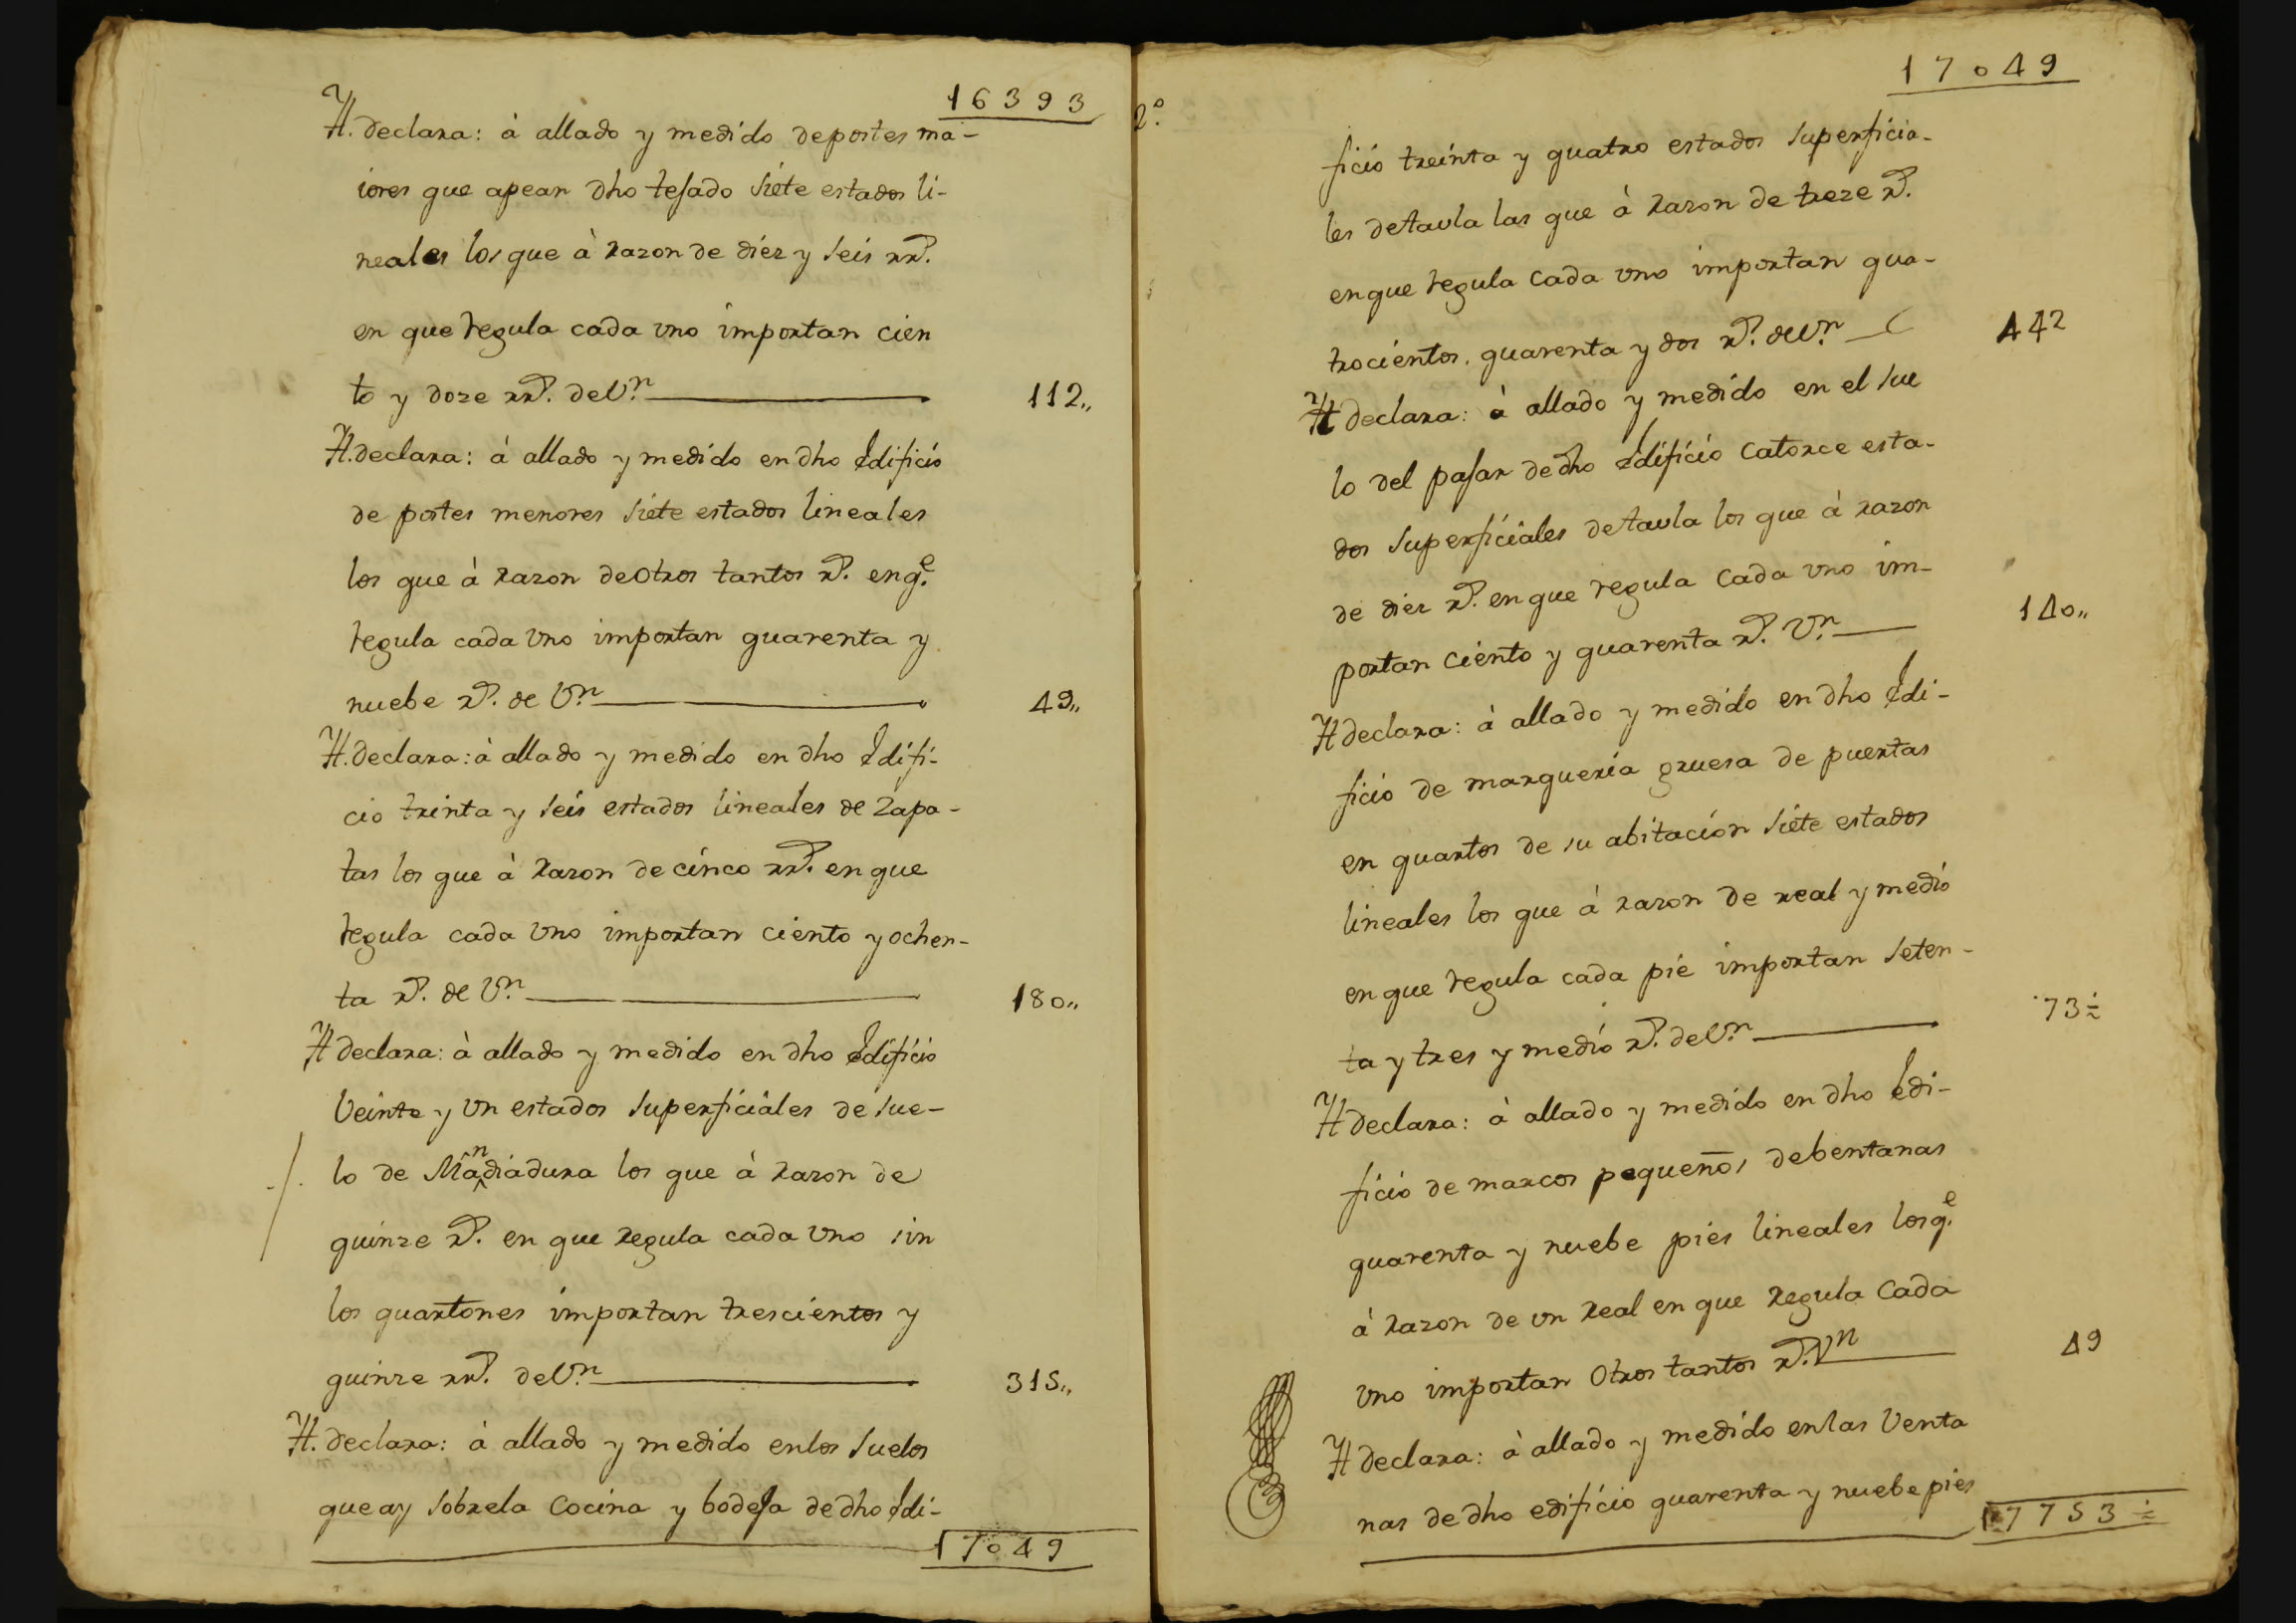 16393
Yt. declara: à allado y medido depostes ma-
iores que apean dho tejado siete estados li-
neales los que à razon de diez y seis rrs.
en que regula cada uno importan cien
to y doze rrs. de Vn. 112,,
Yt. declara: à allado y medido en dho Edificio
de postes menores siete estados lineales
los que à razon de otros tantos rs. enqe.
regula cada Uno importan quarenta y
nuebe rs. de Vn. 49,,
Yt. declara: à allado y medido en dho Edifi-
cio trinta y seis estados lineales de Zapa-
tas los que à razon de cinco rrs. en que
regula cada Uno importan ciento y ochen-
ta rs. de Vn. 180,,
Yt declara: à allado y medido en dho Edificio
Veinte y Un estados superficiales de sue-
lo de Mandiadura los que à razon de
quinze rs. en que regula cada Uno sin
los quartones importan trescientos y
quinze rrs. de Vn. 315,,
Yt. declara: à allado y medido enlos suelos
que ay sobrela Cocina y bodeja de dho Edi-
17049
2º.
17049
ficio treinta y quatro estados superficia-
les detavla las que à razon de treze rs.
enque regula Cada uno importan qua-
trocientos quarenta y dos rs. de Vn. 442
Yt declara: à allado y medido en el sue
lo del pajar de dho Edificio Catorce esta-
dos superficiales detavla los que à razon
de diez rs. en que regula Cada uno im-
portan Ciento y quarenta rs. Vn. 140,,
Yt declara: à allado y medido en dho Edi-
ficio de marqueria gruesa de puertas
en quartos de su abitación siete estados
lineales los que à razon de real y medio
en que regula cada pie importan seten-
ta y tres y medio rs. de Vn. 73½
Yt declara: à allado y medido en dho Edi-
ficio de marcos pequeños debentanas
quarenta y nuebe pies lineales losqe.
à razon de un real en que regula Cada
uno importan Otros tantos rs. Vn 49
Yt declara: à allado y medido enlas Venta
nas de dho edificio quarenta y nuebe pies
17753½